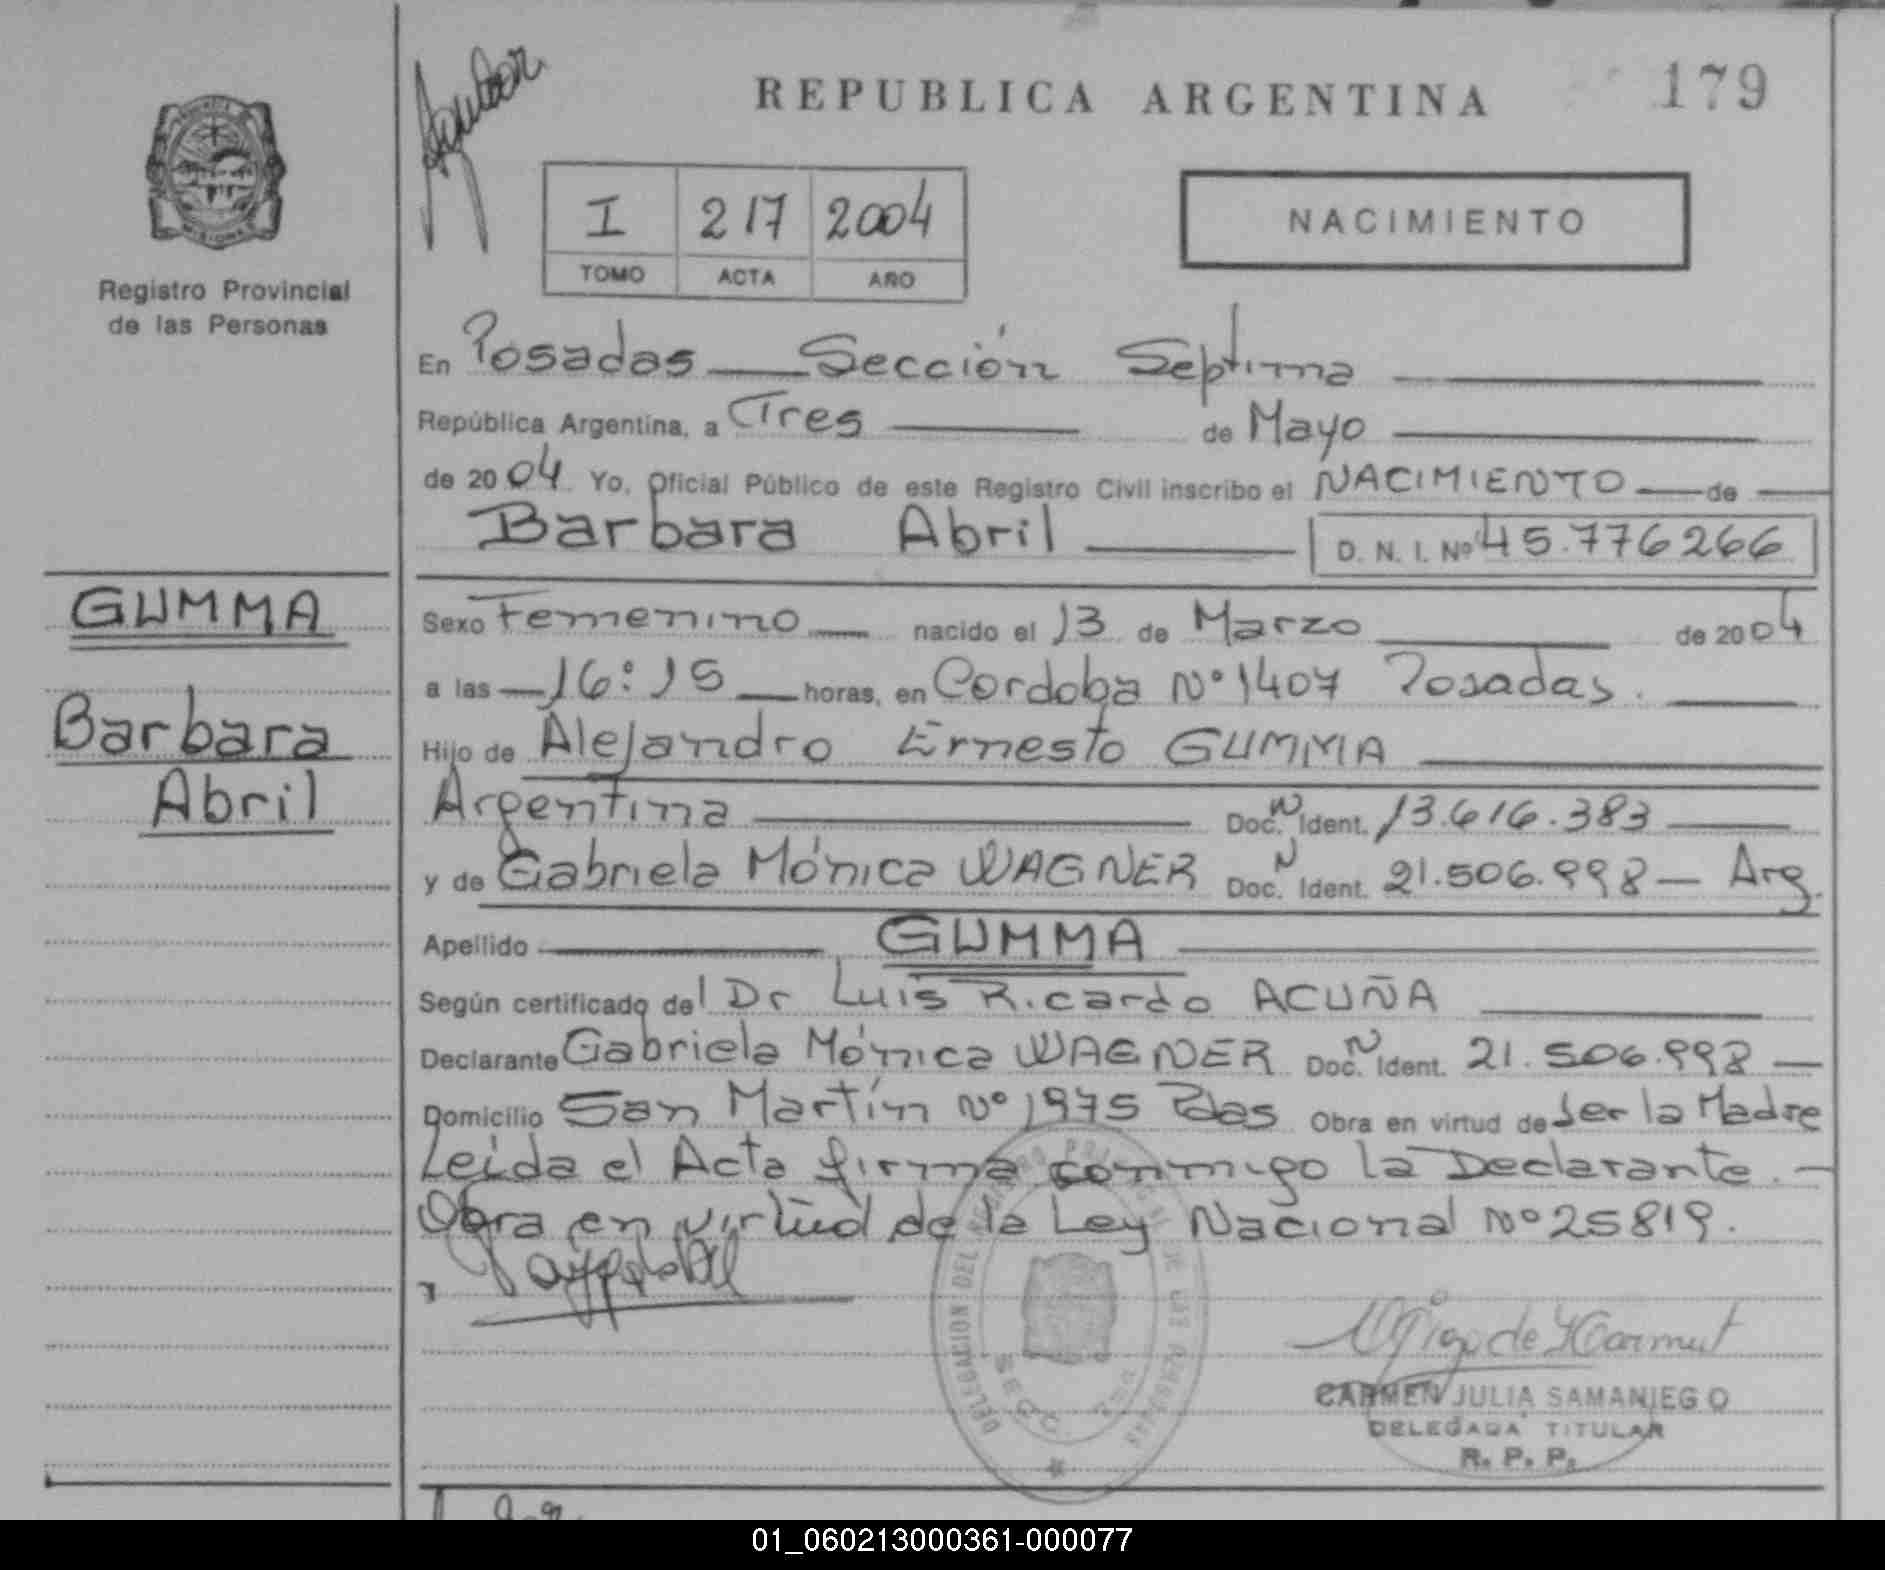 REPUBLICA ARGENTINA
179
I 217 2004
TOMO ACTA AÑO
NACIMIENTO
Registro Provincial
de las Personas
En Posadas Sección Septima
República Argentina, a Tres de Mayo
de 2004 Yo, Oficial Público de este Registro Civil inscribo el NACIMIENTO de
Barbara Abril D. N. I. Nº 45.776266
GUMMA
Barbara
Abril
Sexo Femenino nacido el 13 de Marzo de 2004
a las 16:15 horas, en Cordoba Nº 1407 Posadas.
Hijo de Alejandro Ernesto GUMMA
Argentina Doc. N Ident. 13.616.383
y de Gabriela Mónica WAGNER Doc. N Ident. 21.506.998 — Arg.
Apellido GUMMA
Según certificado del Dr Luis Ricardo ACUÑA
Declarante Gabriela Mónica WAGNER Doc. N Ident. 21.506.998 —
Domicilio San Martín Nº 1975 Pdas Obra en virtud de Ser la Madre
Leida el Acta firma conmigo la Declarante. —
Obra en virtud de la Ley Nacional Nº 25819.
DELEGACION DEL REGISTRO PROVINCIAL DE LAS PERSONAS
CARMEN JULIA SAMANIEGO
DELEGADA TITULAR
R. P. P.
01_060213000361-000077